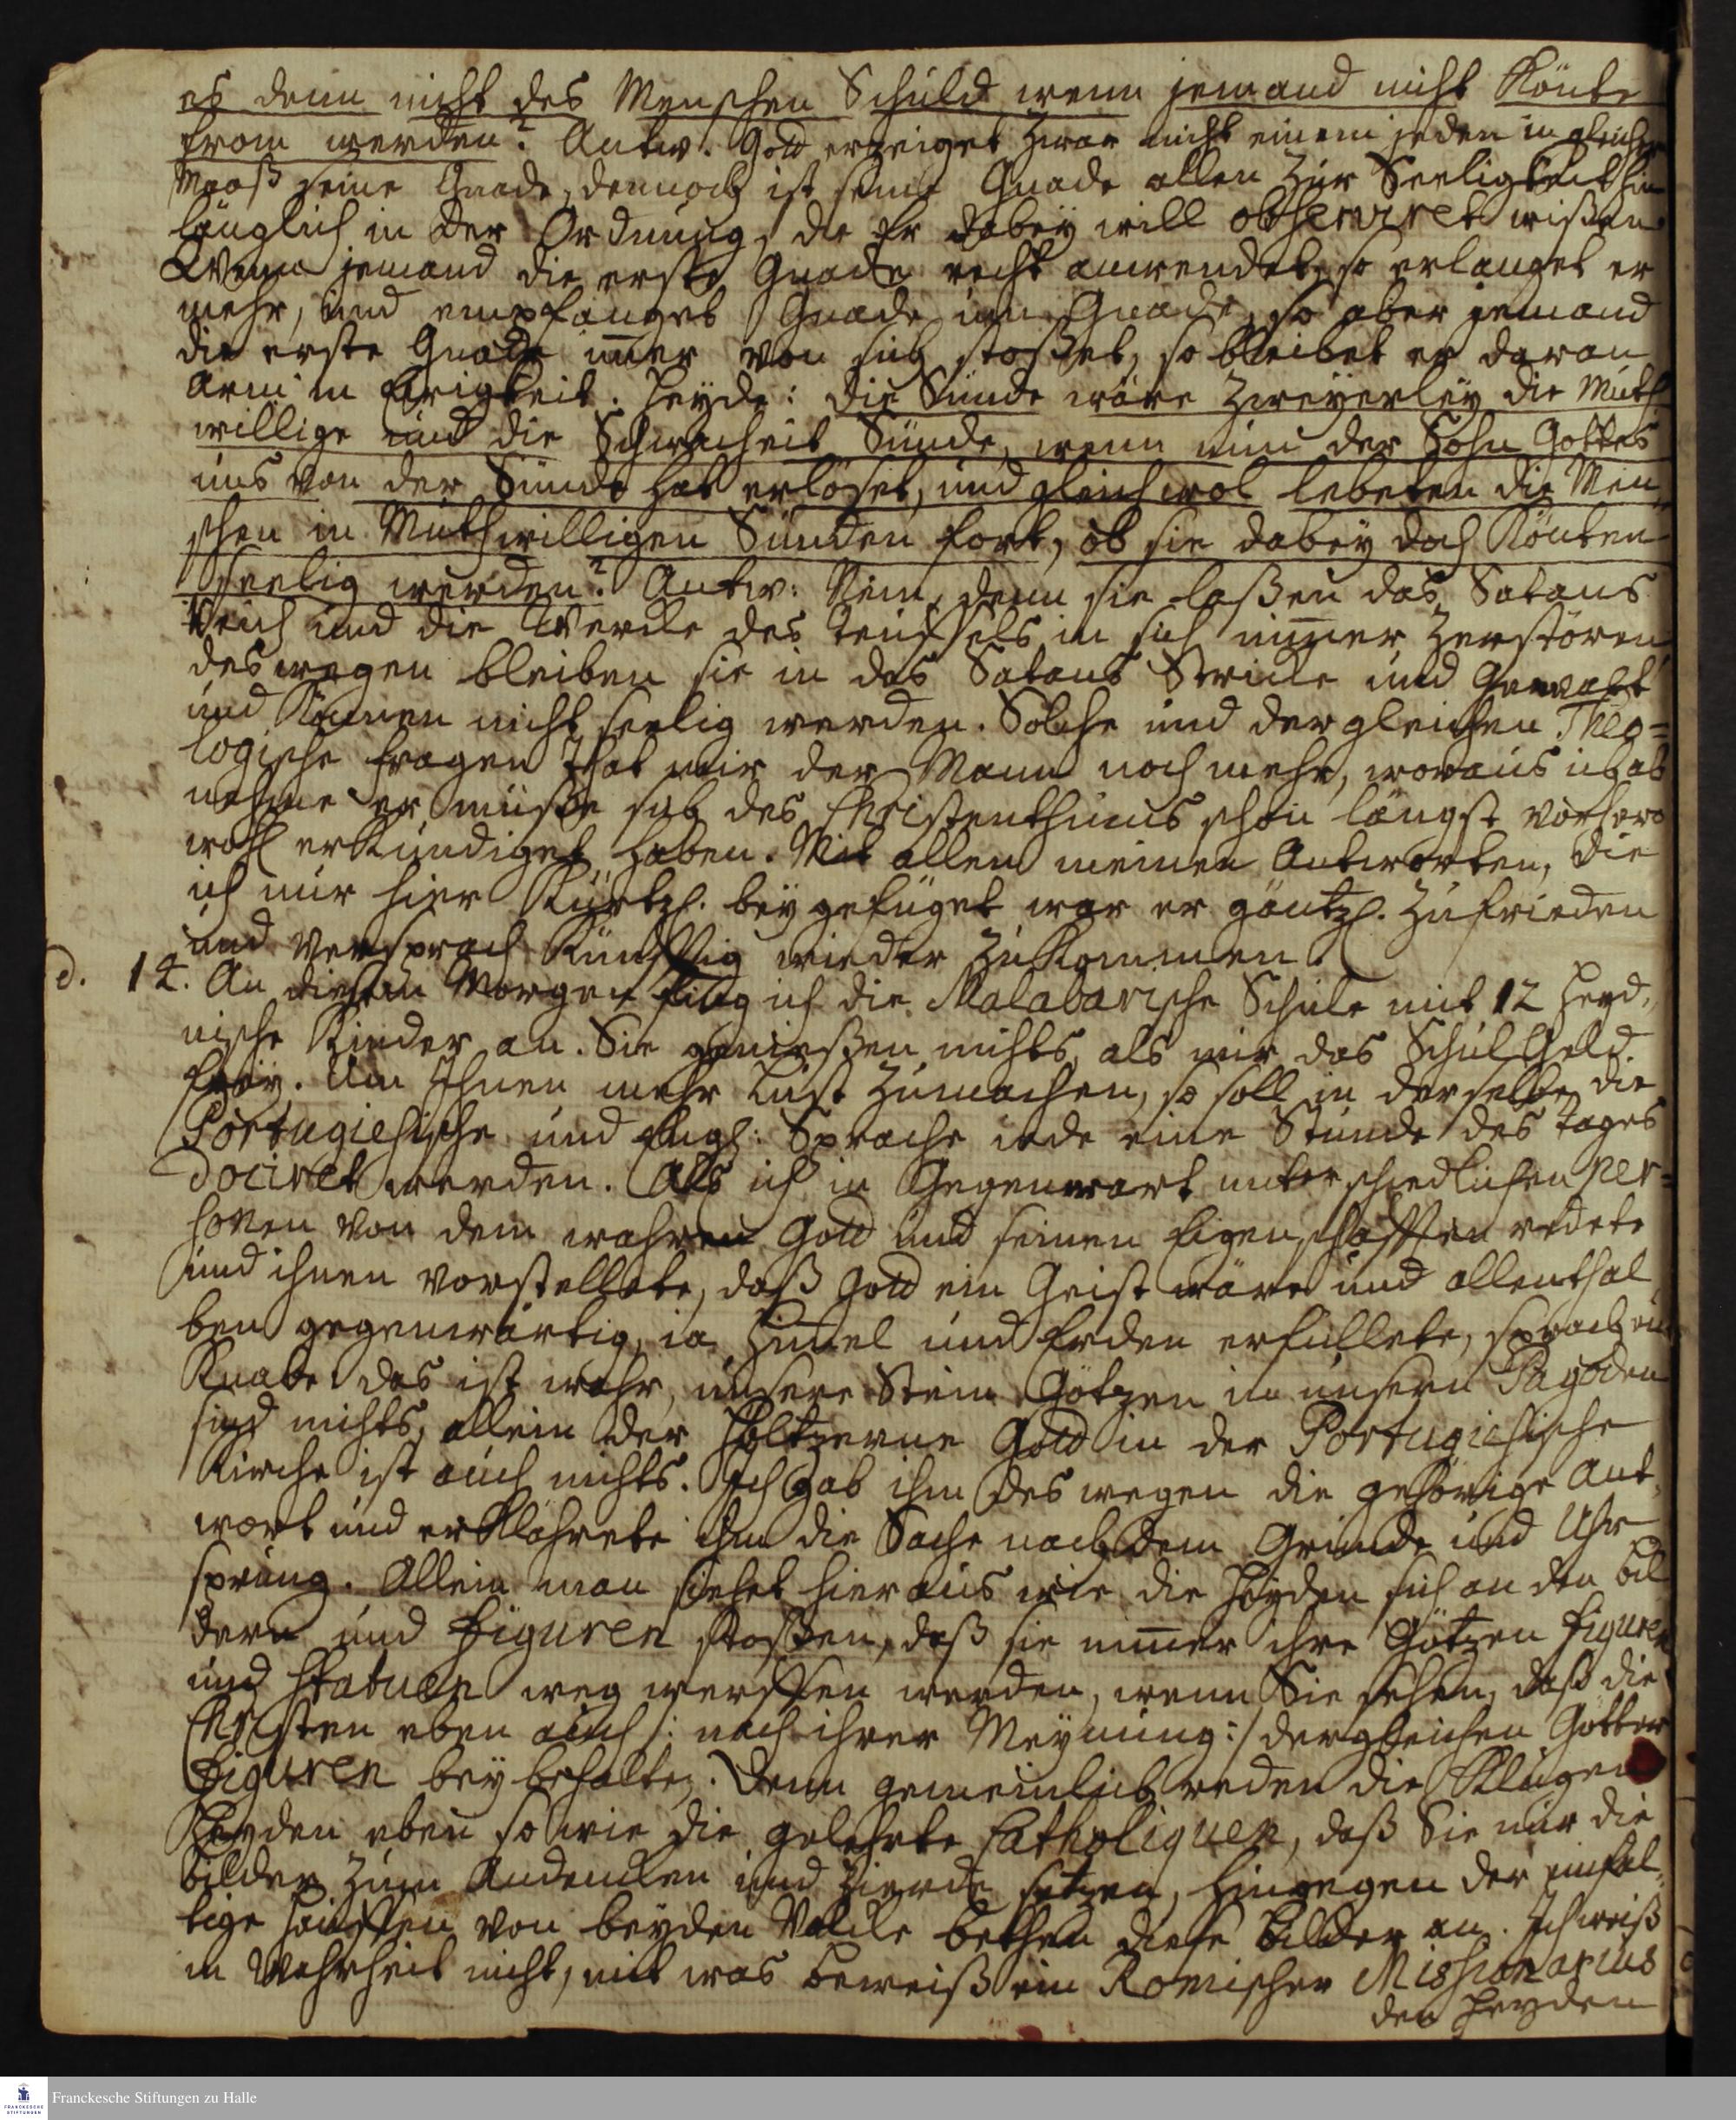 es denn nicht des Menschen Schuld wenn jemand nicht könte
from werden? Antw. Gott erzeiget zwar nicht einem jeden in gleicher
Maaß seine Gnade, dennoch ist seine Gnade allen zur Seeligkeit hin
länglich in der Ordnung, die Er dabey will observiret wißen.
Wenn jemand die erste Gnade recht anwendet, so erlanget er
mehr, und empfänget Gnade um Gnade, so aber jemand
die erste Gnade im̄er von sich stoßet, so bleibet er daran
Arm in Ewigkeit. Heyde: die Sünde wäre zweyerley die Muth
willige und die Schwacheit Sünde, wenn nun der Sohn Gottes
uns von der Sünde hat erlöset, und gleichwol lebeten die Men
schen in Muthwilligen Sünden fort, ob sie dabey doch könten
Seelig werden? Antw: Nein, denn sie laßen das Satans
Reich und die Wercke des Teuffels in sich nim̄er zerstören
deswegen bleiben sie in des Satans Stricke und Gewalt
und können nicht seelig werden. Solche und dergleichen Theo=
logische fragen that mir der Mann noch mehr, woraus ich ab
nehme er müße sich des Christenthums schon längst vorhero
wohl erkundiget haben. Mit allen meinen Antworten, die
ich nur hier Kürtzl. beygefüget war er gäntzl. zufrieden
und versprach künfftig wieder zukommen.
d. 12. An diesem Morgen fing ich die Malabarische Schule mit 12 Heyd,
nische Kinder an. Sie genießen nichts, als nur das Schul Geld
frey. Um Ihnen mehr Lust zumachen, so soll in derselbe die
Portugiesische und Engl: Sprache iede eine Stunde des Tages
dociret werden. Als ich in Gegenwart unterschiedlichen Per=
sonen von dem wahren Gott und seinen Eigenschafften redete
und ihnen vorstellete, daß Gott ein Geist wäre und allenthal
ben gegenwärtig, ia Him̄el und Erden erfüllete, sprach ein
Knabe das ist wahr, unsere Stein Götzen in unsern Pagoden
sind nichts, allein der Höltzerne Gott in der Portugiesische
Kirche ist auch nichts. Ich gab ihm deswegen die gehörige Ant,
wort und erklährete ihm die Sache nach dem Grunde und Uhr
sprung. Allein man siehet hieraus wie die Heyden sich an den Bil
dern und Figuren stoßen, daß sie nim̄er ihre Götzen Figuren
und Statuen weg werffen werden, wenn Sie sehen, daß die
Christen eben auch /: nach ihrer Meynung:/ dergleichen Götter
Figuren beybehalten. Denn gemeinlich reden die Klugen
Heyden eben so wie die gelehrte Catholiquen, daß Sie nur die
Bilder zum Andencken und Zierde setzen, hingegen der einfäl,
tige Hauffen von beyden Volcke bethen diese Bilder an. Ich weiß
in Wahrheit nicht, mit was Beweiß ein Romischer Missionarius
den Heyden
Franckesche Stiftungen zu Halle